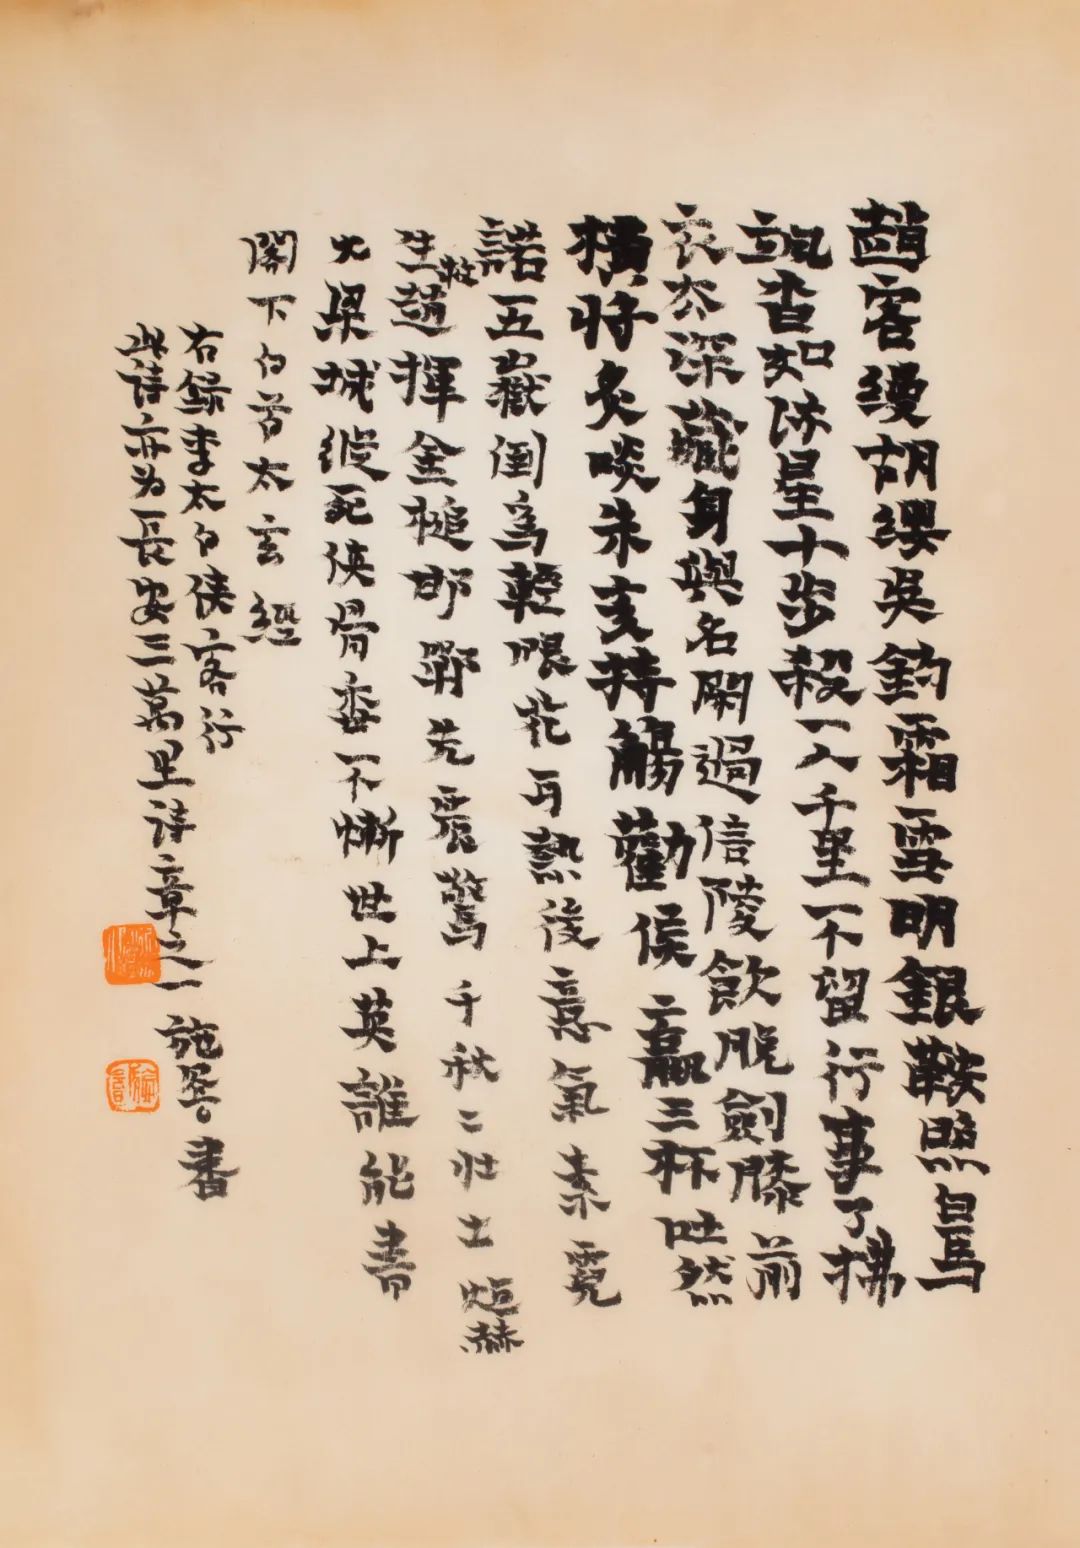 趙客縵胡纓吳鉤霜雪明銀鞍照白馬
颯沓如流星十步殺一人千里不留行事了拂
衣去深藏身與名閑過信陵飲脫劍膝前
橫將炙啖朱亥持觴勸侯嬴三杯吐然
諾五嶽倒為輕眼花耳熱後意氣素霓
生救趙揮金槌邯鄲先震驚千秋二壯士烜赫
大梁城縱死俠骨香不慚世上英誰能書
閣下白首太玄經
右錄李太白俠客行
此詩亦为長安三萬里詩章之一 施書